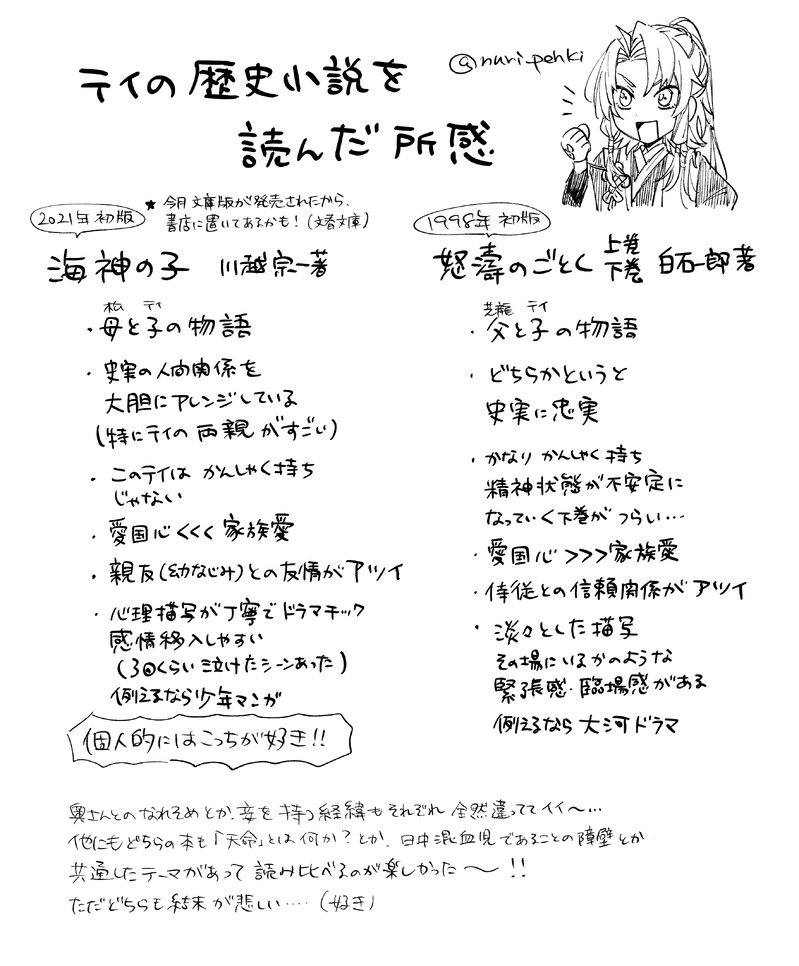 テイの歴史小説を
読んだ所感
@nuri_penki
2021年初版
★ 今月文庫版が発売されたから、
書店に置いてあるかも！(文春文庫)
海神の子 川越宗一著
松 テイ
・母と子の物語
・史実の人間関係を
大胆にアレンジしている
(特にテイの両親がすごい)
・このテイは かんしゃく持ち
じゃない
・愛国心<<<家族愛
・親友(幼なじみ)との友情がアツイ
・心理描写が丁寧でドラマチック
感情移入しやすい
(3回くらい泣けたシーンあった)
例えるなら少年マンガ
個人的にはこっちが好き!!
1998年 初版
怒濤のごとく 上巻 下巻 白石一郎著
芝龍 テイ
・父と子の物語
・どちらかというと
史実に忠実
・かなり かんしゃく持ち
精神状態が不安定に
なっていく下巻が つらい…
・愛国心>>>家族愛
・侍従との信頼関係がアツイ
・淡々とした描写
その場にいるかのような
緊張感・臨場感がある
例えるなら 大河ドラマ
奥さんとのなれそめとか、妾を持つ経緯もそれぞれ 全然違っててイイ〜…
他にもどちらの本も「天命」とは何か？とか、日中混血児であることの障壁とか
共通したテーマがあって 読み比べるのが楽しかった〜!!
ただどちらも結末が悲しい……(好き)